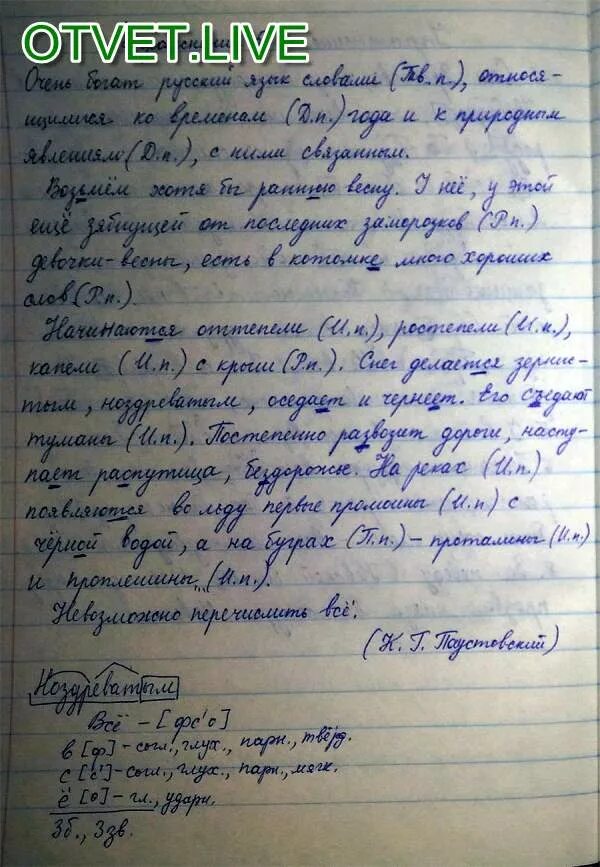 OTVET.LIVE
Очень богат русский язык словами (Тв.п.), относя-
щимися ко временам (Д.п.) года и к природным
явлениям (Д.п.), с ними связанным.
Возьмём хотя бы раннюю весну. У неё, у этой
ещё зябнущей от последних заморозков (Р.п.)
девочки-весны, есть в котомке много хороших
слов (Р.п.).
Начинаются оттепели (И.п.), ростепели (И.п.),
капели (И.п.) с крыш (Р.п.). Снег делается зернис-
тым, ноздреватым, оседает и чернеет. Его съедают
туманы (И.п.). Постепенно развозит дороги, насту-
пает распутица, бездорожье. На реках (И.п.)
появляются во льду первые промоины (И.п) с
чёрной водой, а на буграх (П.п.) - проталины (И.п.)
и проплешины (И.п.).
Невозможно перечислить всё.
(К. Г. Паустовский)
Ноздреватым
Всё - [фс'о]
в [ф] - согл., глух., парн., твёрд.
с [с'] - согл., глух., парн., мягк.
ё [о] - гл., ударн.
3б., 3зв.